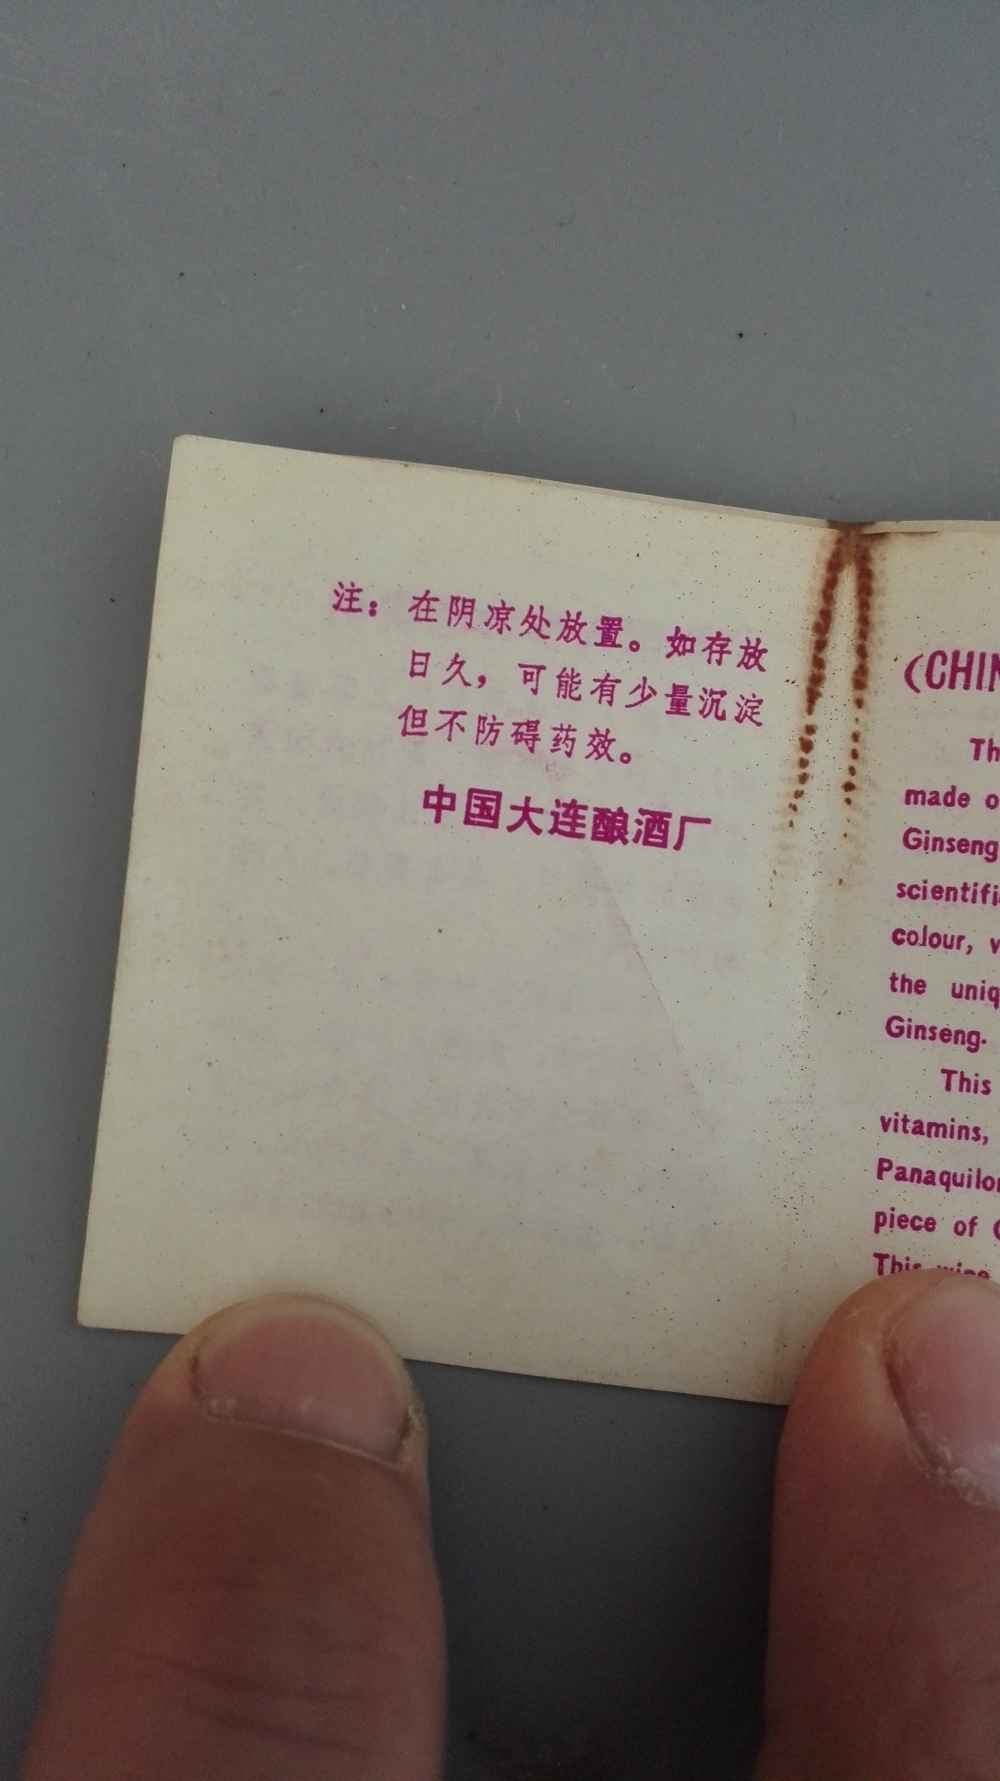 注：在阴凉处放置。如存放
日久，可能有少量沉淀
但不防碍药效。
中国大连酿酒厂
(CHIN
Th
made o
Ginseng
scientifi
colour, w
the uniq
Ginseng.
This
vitamins,
Panaquilon
piece of
This wine